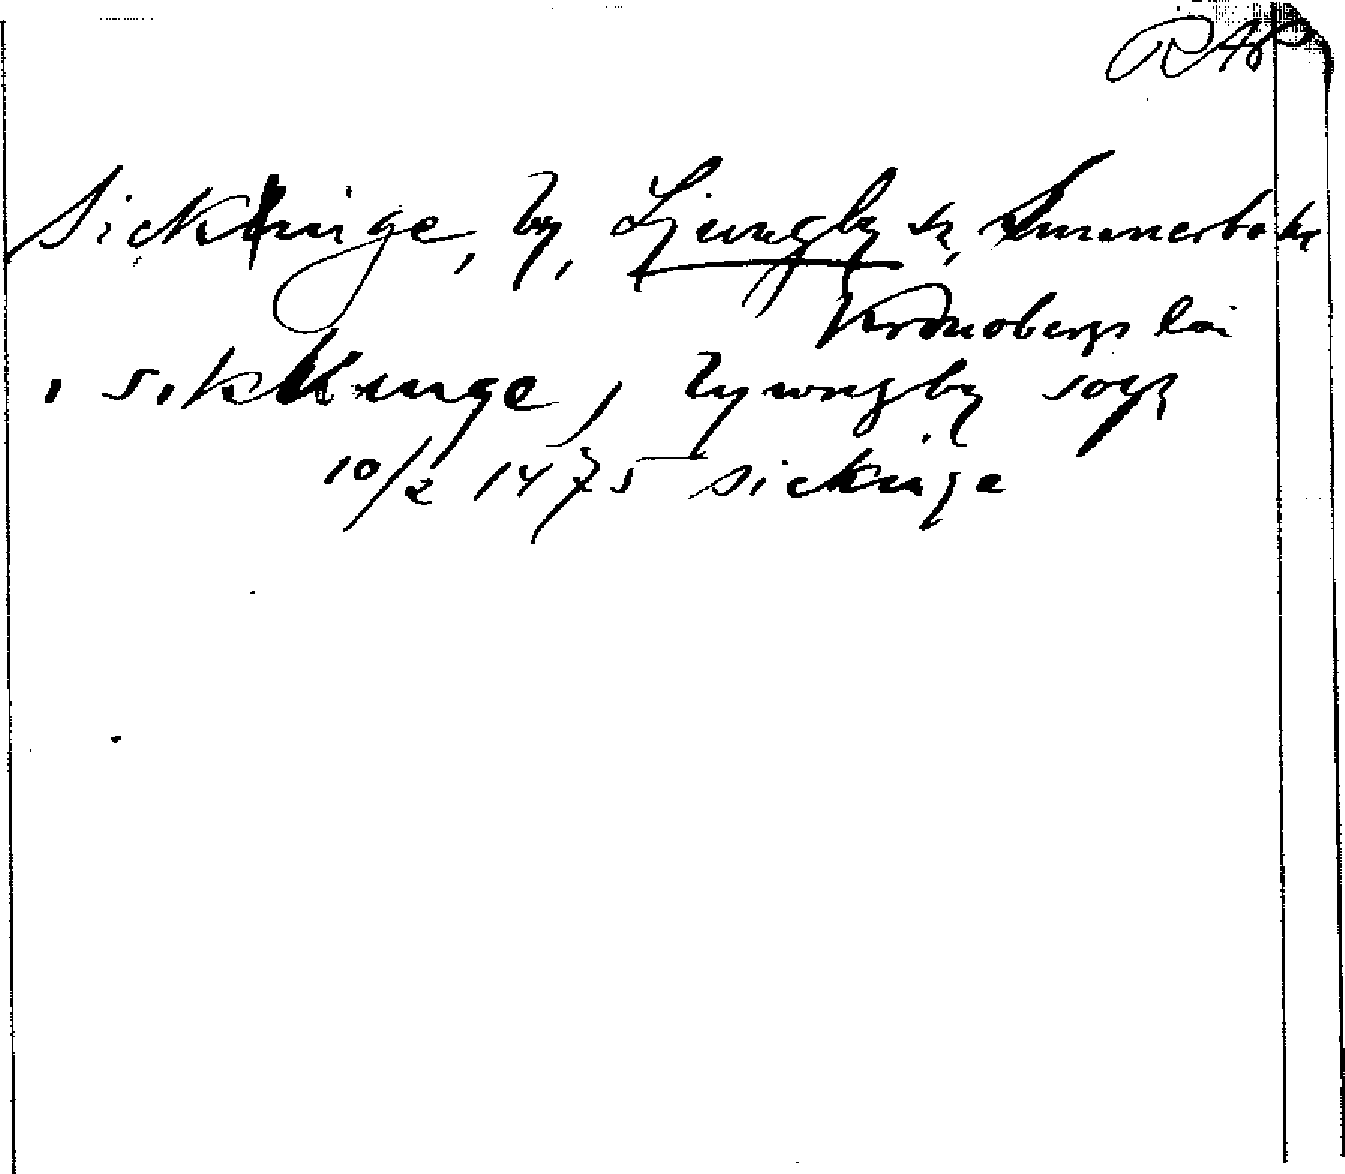 RAP
Sickinge, by, Ljungby sn, Sunnerbo hd
Kronobergs län
i sikkinge, lywngby sogn
10/2 1475 sickinge